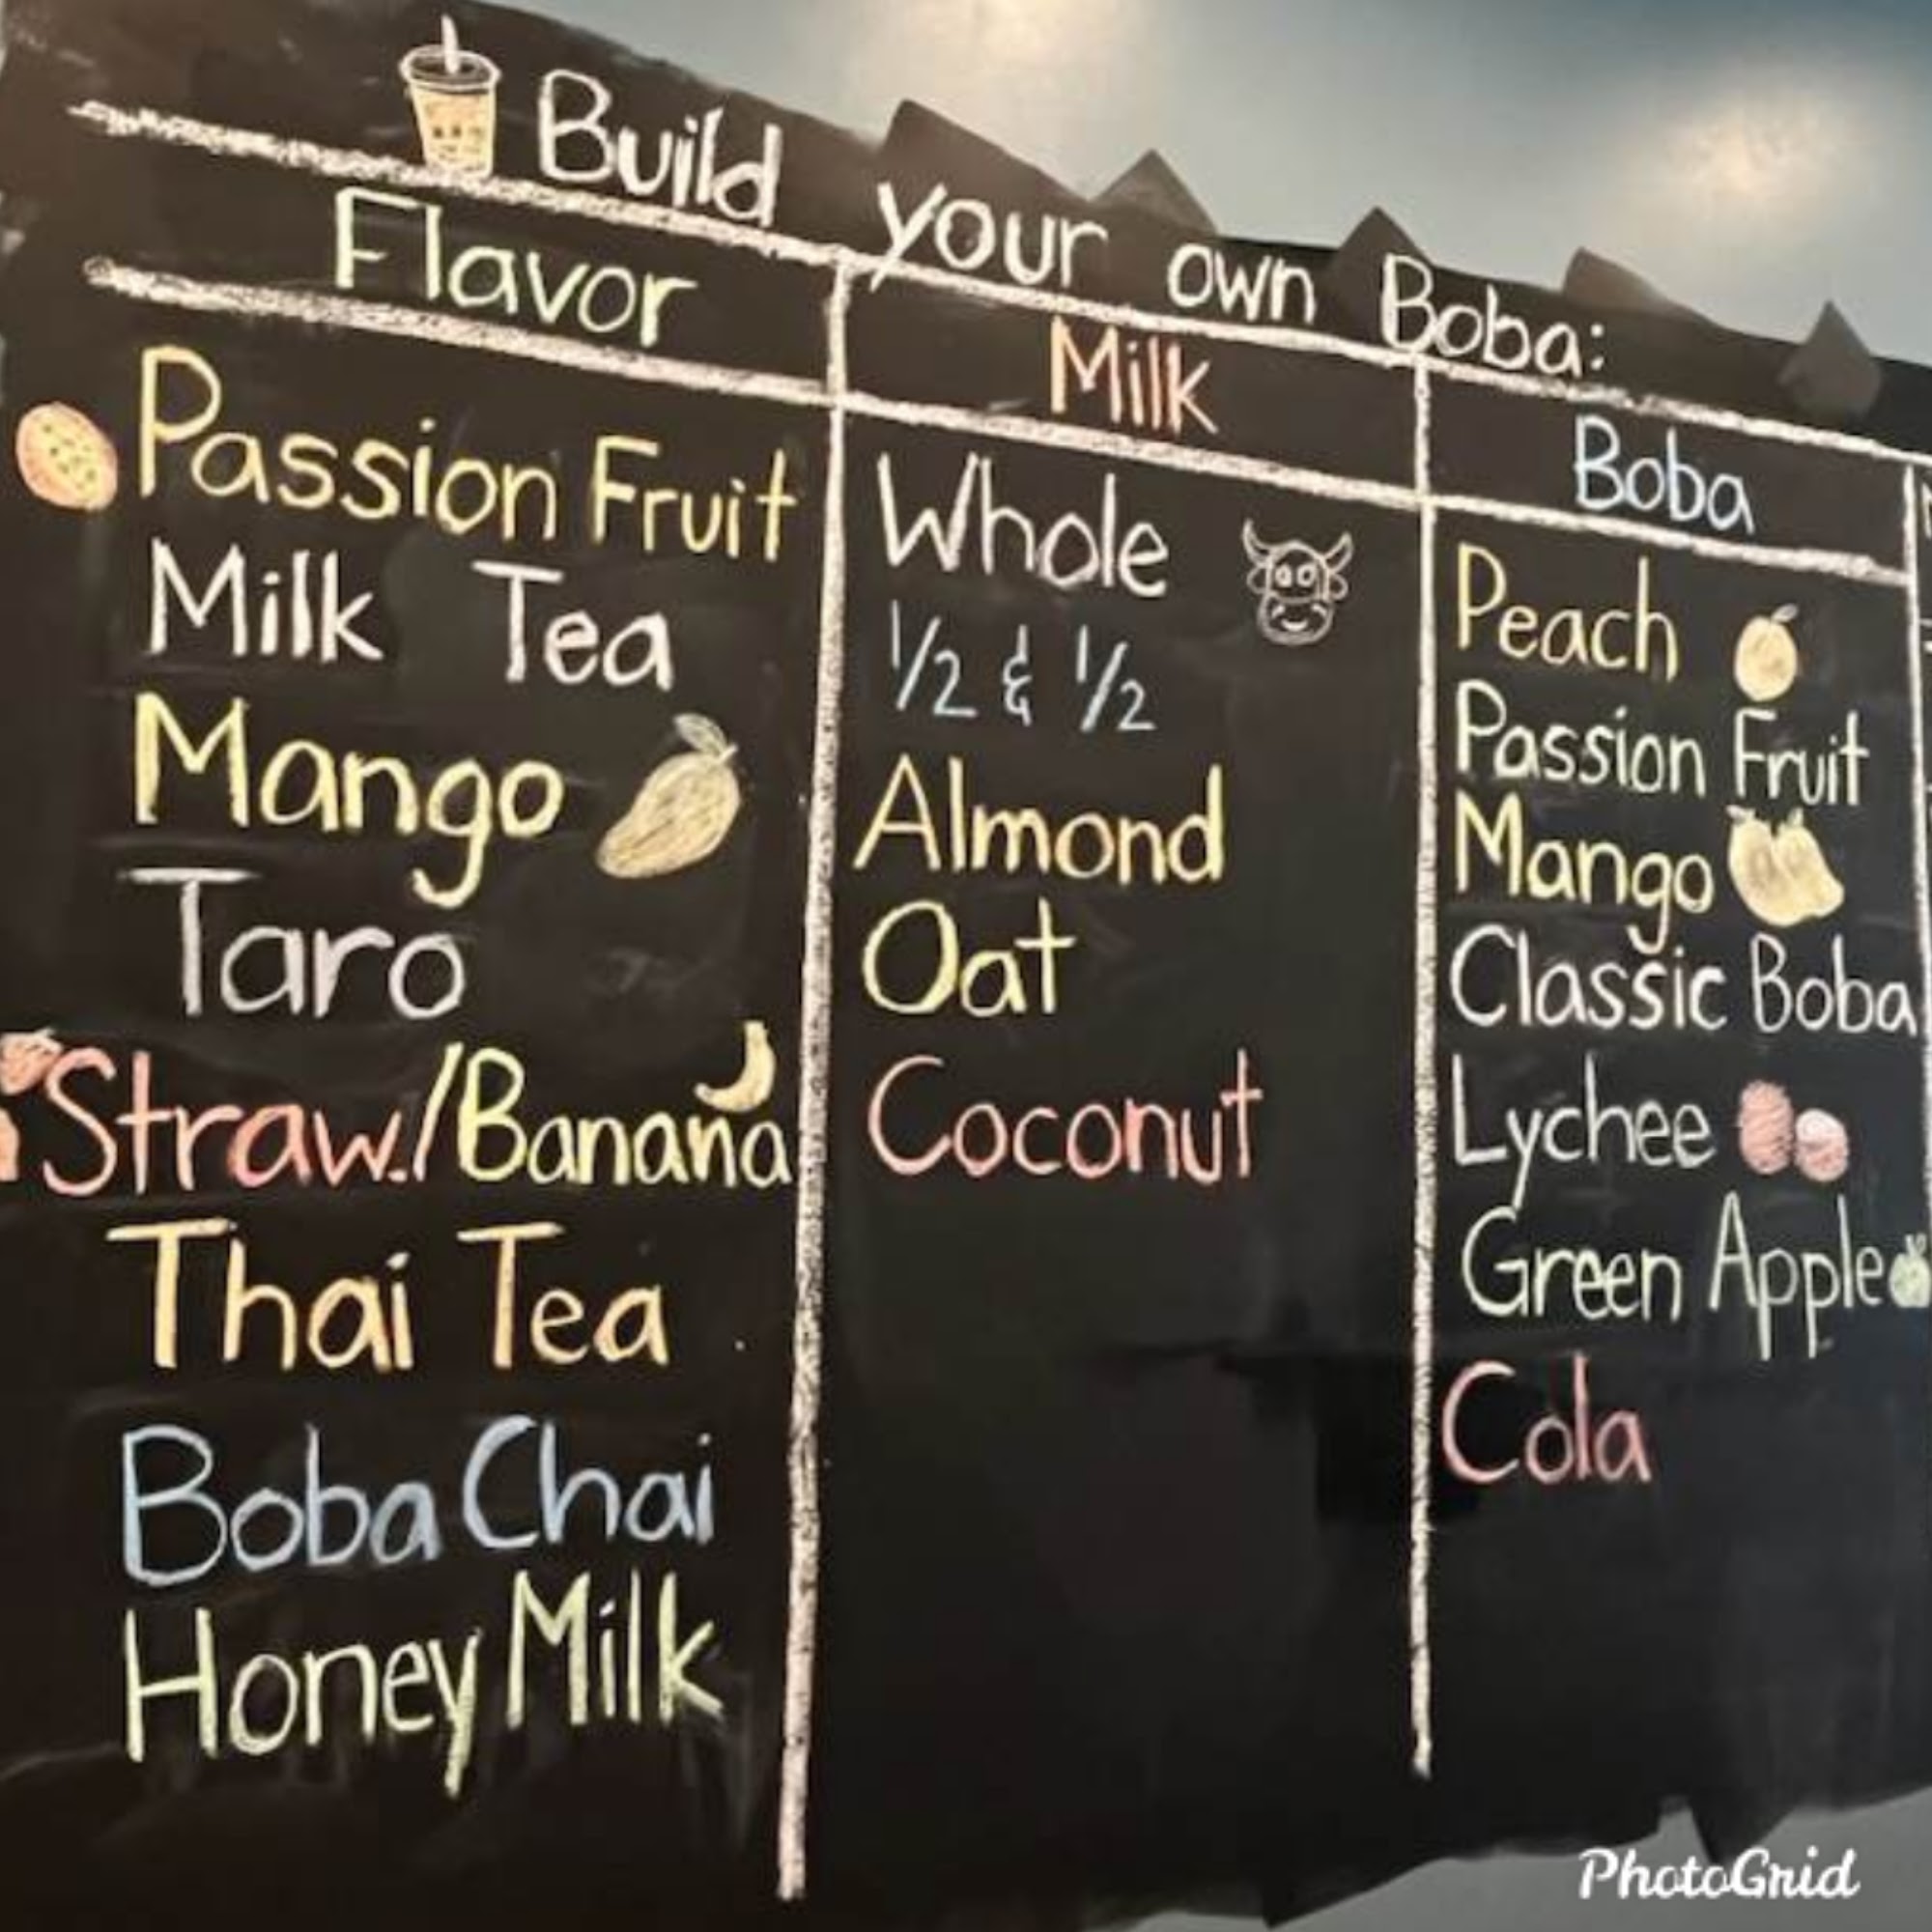 Build your own Boba:
Flavor
Passion Fruit
Milk Tea
Mango
Taro
Straw./Banana
Thai Tea
Boba Chai
Honey Milk
Milk
Whole
1/2 & 1/2
Almond
Oat
Coconut
Boba
Peach
Passion Fruit
Mango
Classic Boba
Lychee
Green Apple
Cola
PhotoGrid